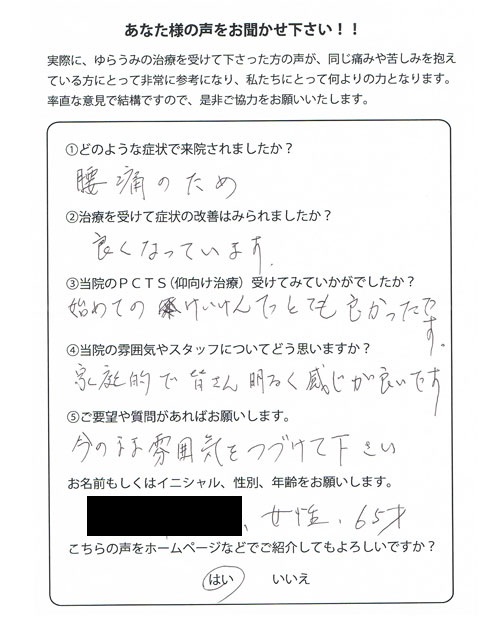 あなた様の声をお聞かせ下さい！！
実際に、ゆらうみの治療を受けて下さった方の声が、同じ痛みや苦しみを抱え
ている方にとって非常に参考になり、私たちにとって何よりの力となります。
率直な意見で結構ですので、是非ご協力をお願いいたします。
①どのような症状で来院されましたか？
腰痛のため
②治療を受けて症状の改善はみられましたか？
良くなっています.
③当院のＰＣＴＳ（仰向け治療）受けてみていかがでしたか？
始めての けいけんでとても良かったで
す。
④当院の雰囲気やスタッフについてどう思いますか？
家庭的で皆さん明るく感じが良いです
⑤ご要望や質問があればお願いします。
今のまま雰囲気をつづけて下さい
お名前もしくはイニシャル、性別、年齢をお願いします。
、女性、65才
こちらの声をホームページなどでご紹介してもよろしいですか？
はい いいえ